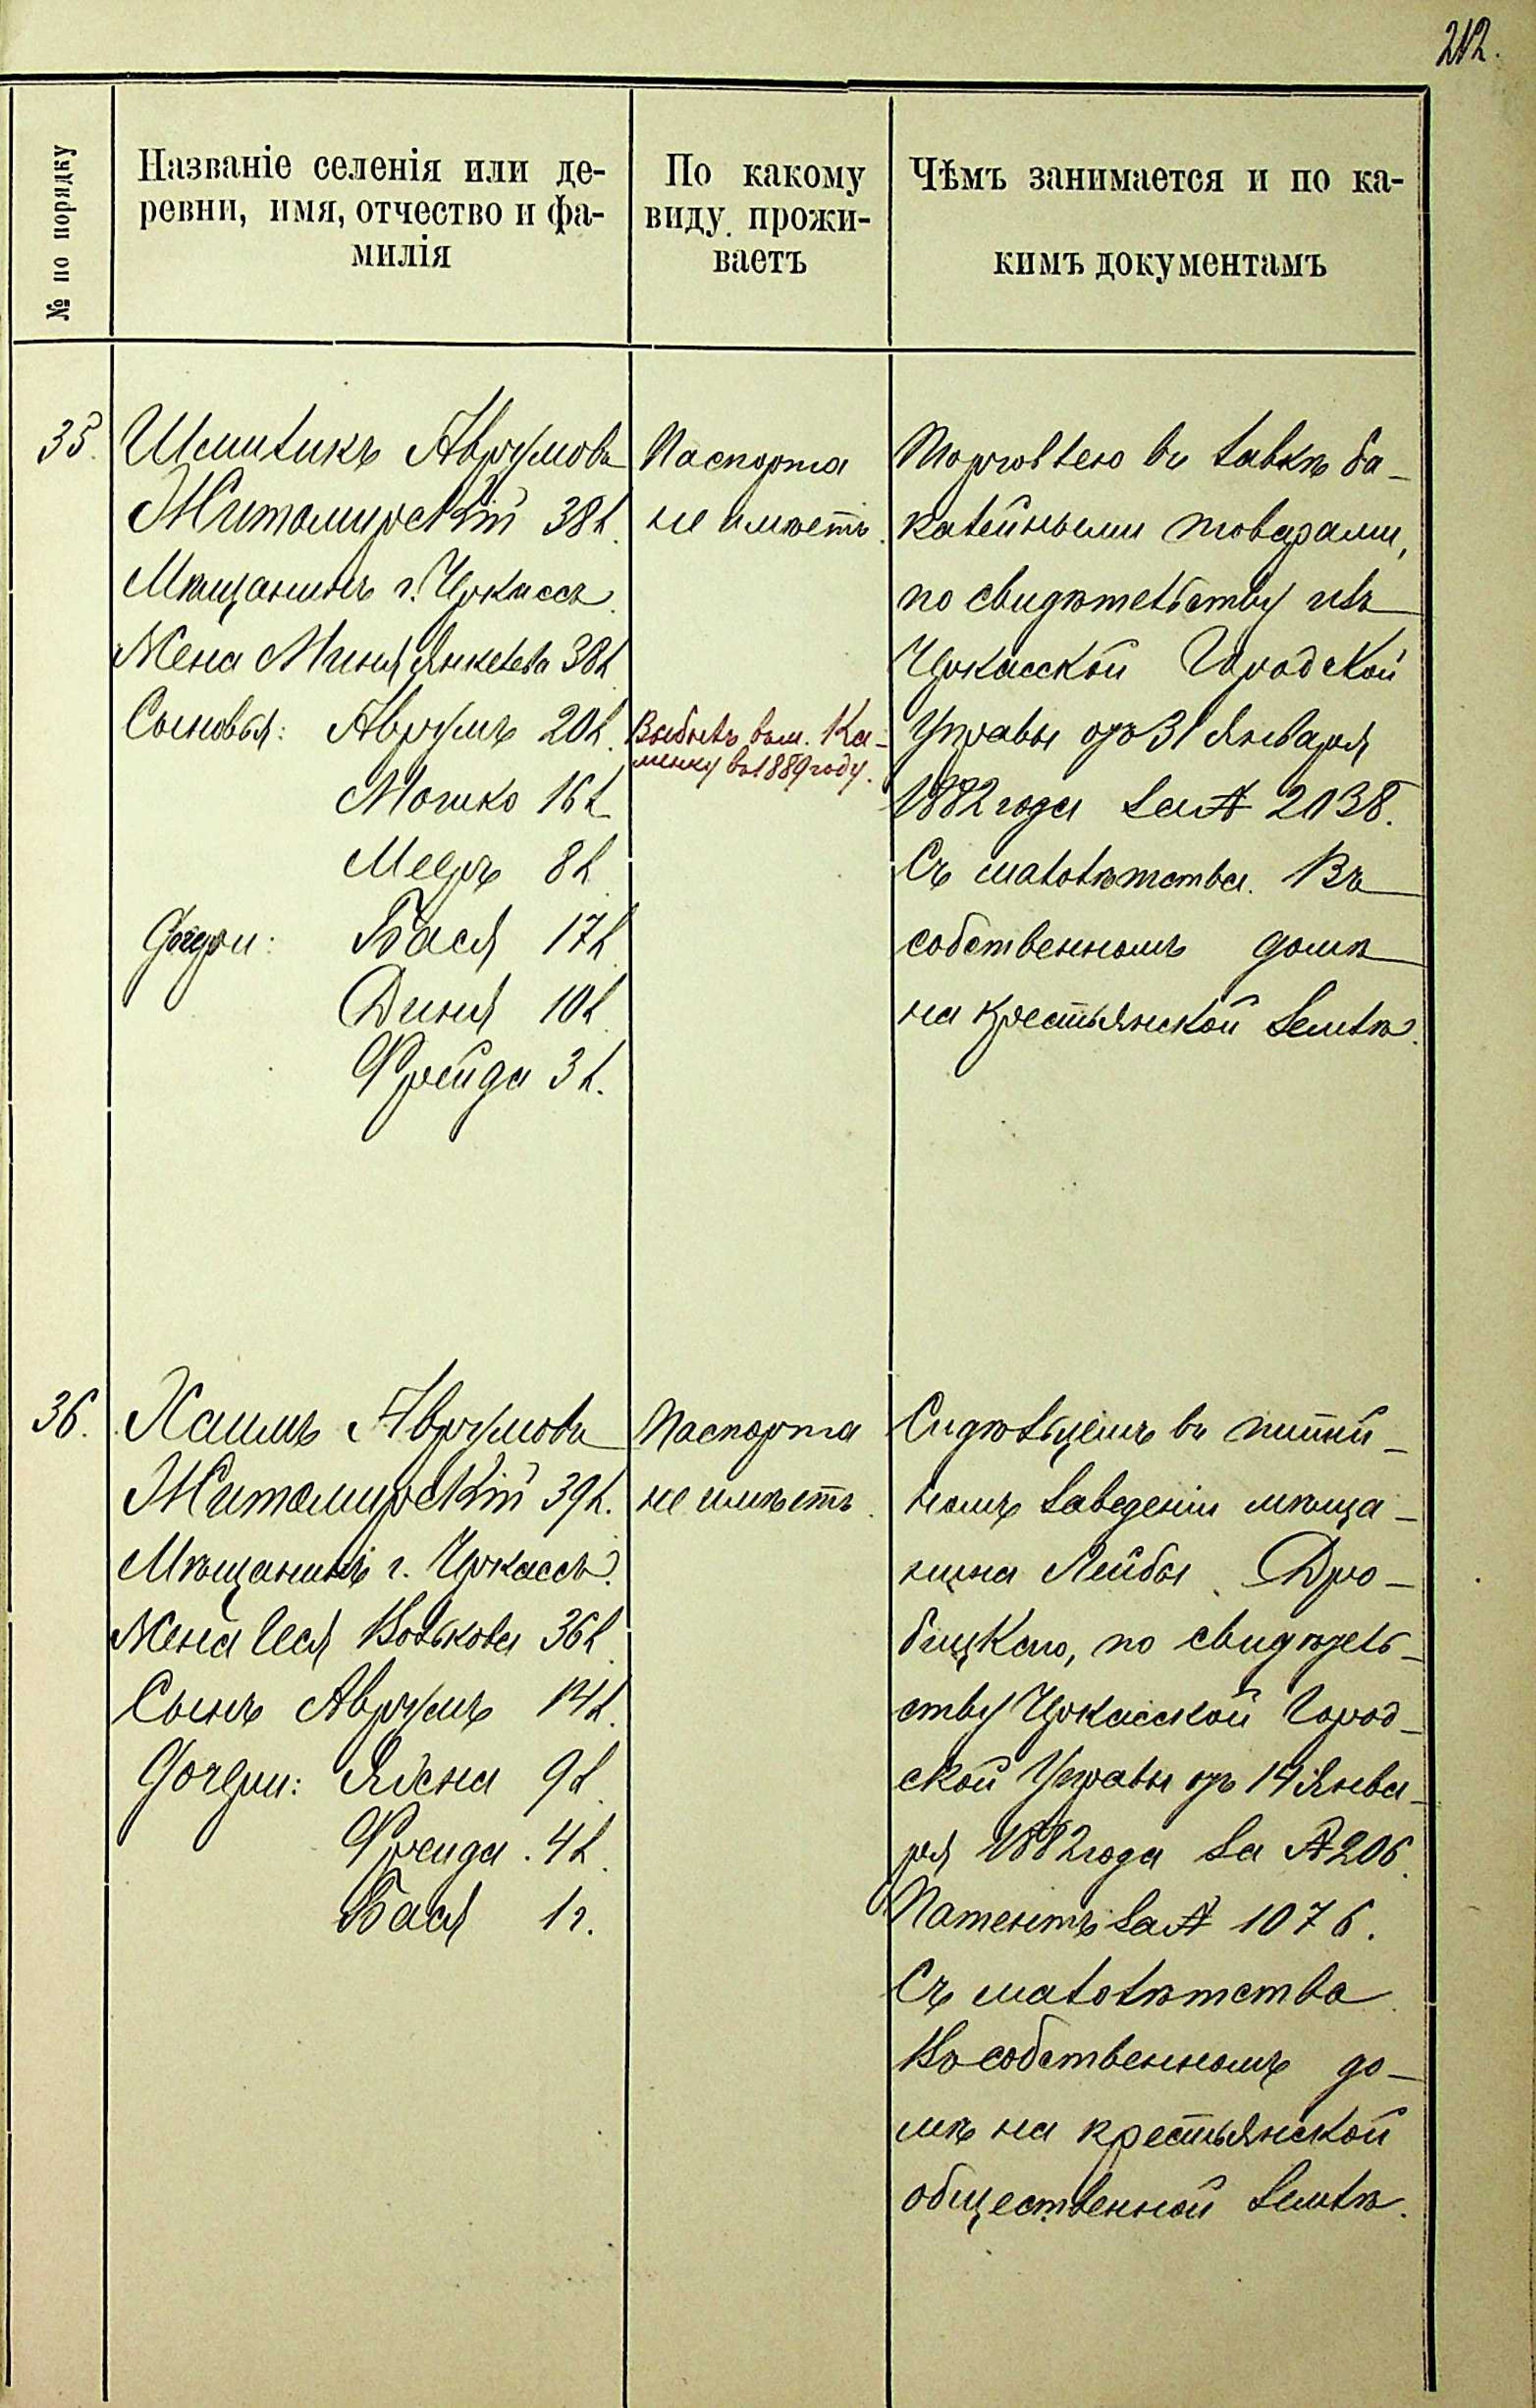 212.
№ по порядку
Названіе селенія или де-
ревни, имя, отчество и фа-
милія
По какому
виду прожи-
ваетъ
Чѣмъ занимается и по ка-
кимъ документамъ
35.
Шмиликъ Аврумовъ
Житомирскій 38 л.
Мѣщанинъ г. Черкассъ.
Жена Миня Янкелева 38 л.
Сыновья: Аврумъ 20 л.
Мошко 16 л.
Мееръ 8 л.
Дочери: Бася 17 л.
Диня 10 л.
Фрейда 3 л.
Паспорта
не имѣетъ.
Выбылъ въ м. Ка-
менку въ 1889 году.
Торговлею въ лавкѣ ба-
калейными товарами,
по свидѣтельству изъ
Черкасской Городской
Управы отъ 31 Января
1882 года за № 2038.
Съ малолѣтства. Въ
собственномъ домѣ
на крестьянской землѣ.
36.
Хаимъ Аврумовъ
Житомирскій 39 л.
Мѣщанинъ г. Черкассъ.
Жена Еся Волькова 36 л.
Сынъ Аврумъ 14 л.
Дочери: 9 л.
Фрейда 4 л.
Бася 1 г.
Паспорта
не имѣетъ.
Сидѣльцемъ въ питей-
номъ заведеніи мѣща-
нина Лейбы Дро-
бицкаго, по свидѣтель-
ству Черкасской Город-
ской Управы отъ 14 Янва-
ря 1882 года за № 206.
Патентъ за № 1076.
Съ малолѣтства.
Въ собственномъ до-
мѣ на крестьянской
общественной землѣ.